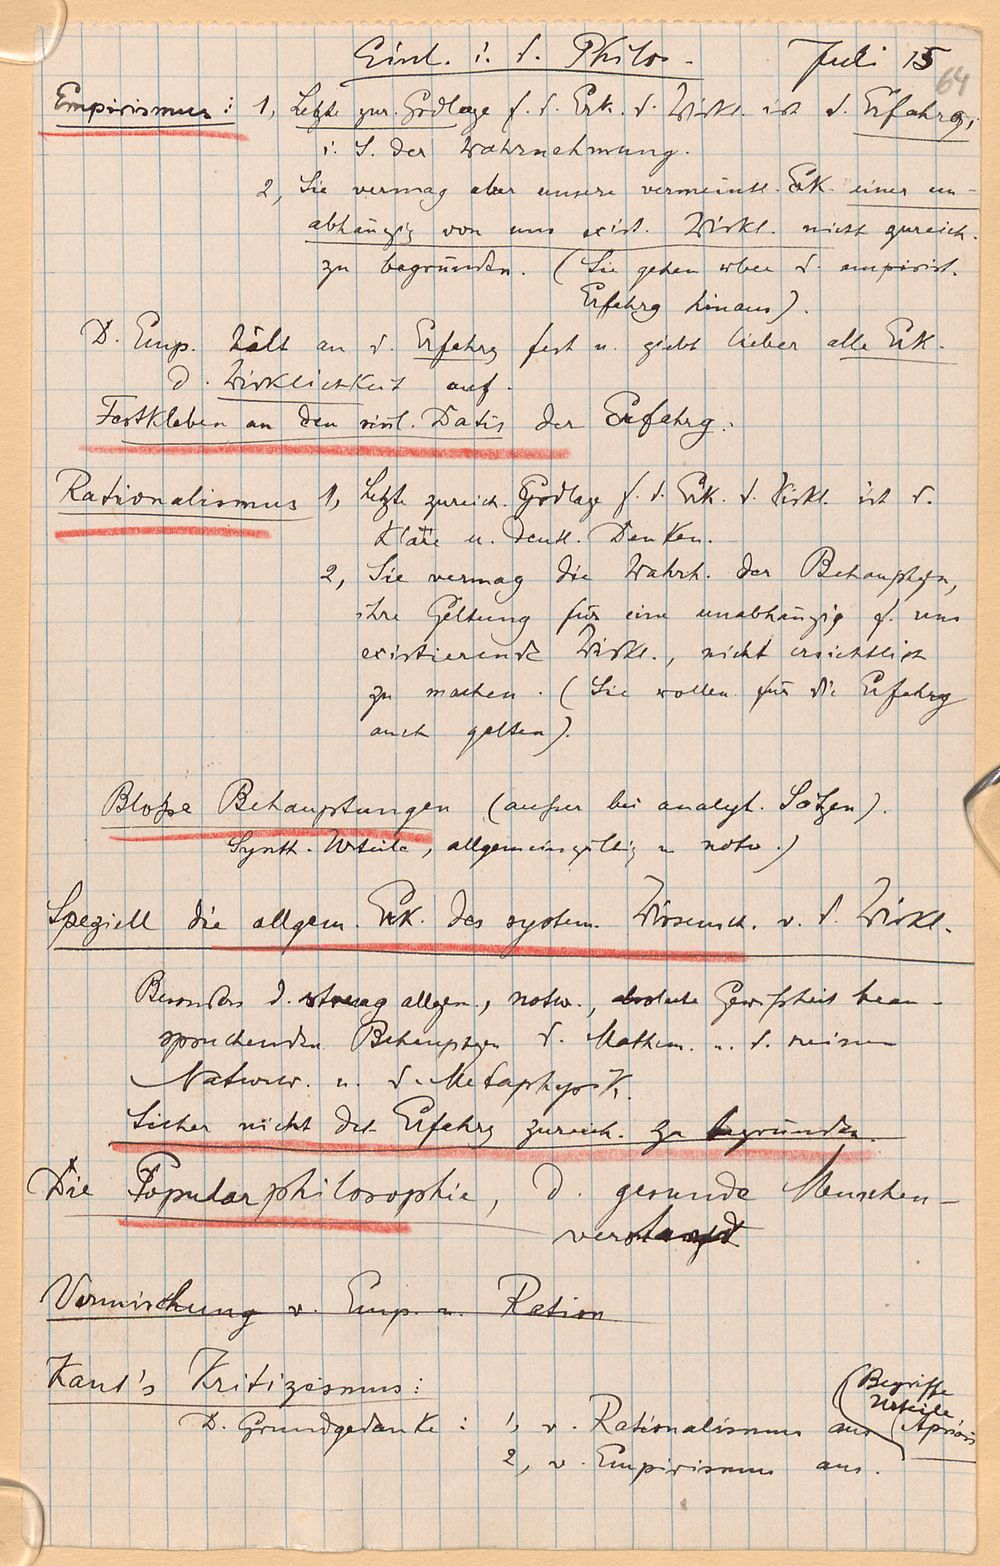 Einl. i. d. Philos. Juli 15
64
Empirismus: 1, Letzte zur. Grdlage f. d. Erk. d. Wirkl. ist d. Erfahrg,
i. S. der Wahrnehmung.
2, Sie vermag aber unsere vermeintl. Erk. einer un-
abhängig von uns exist. Wirkl. nicht zureich.
zu begründen. (Sie gehen über d. empirist.
Erfahrg hinaus).
D. Emp. hält an d. Erfahrg fest u. giebt lieber alle Erk.
d. Wirklichkeit auf.
Festkleben an den sinl. Datis der Erfahrg.
Rationalismus 1, Letzte zureich. Grdlage f. d. Erk. d. Wirkl. ist d.
klare u. deutl. Denken.
2, Sie vermag die Wahrh. der Behauptgn,
ihre Geltung für eine unabhängig v. uns
existierende Wirkl., nicht ersichtlich
zu machen. (Sie wollen für die Erfahrg
auch gelten).
Bloße Behauptungen (außer bei analyt. Sätzen).
Synth. Urteile, allgemeingültig u notw.)
Speziell die allgem. Erk. des system. Wissensch. v. d. Wirkl.
Besonders d. streng allgem., notw., absolute Gewißheit bean-
spruchenden Behauptgen d. Mathem. u. d. reinen
Naturw. u. d. Metaphysik.
Sicher nicht der Erfahrg zureich. zu begründen.
Die Popularphilosophie, d. gesunde Menschen-
verstand
Vermischung v. Emp. u. Ration
Kant's Kritizismus:
(Begriffe
Urteile
Apriori
D. Grundgedanke: 1, v. Rationalismus aus
2, v. Empirismus aus.